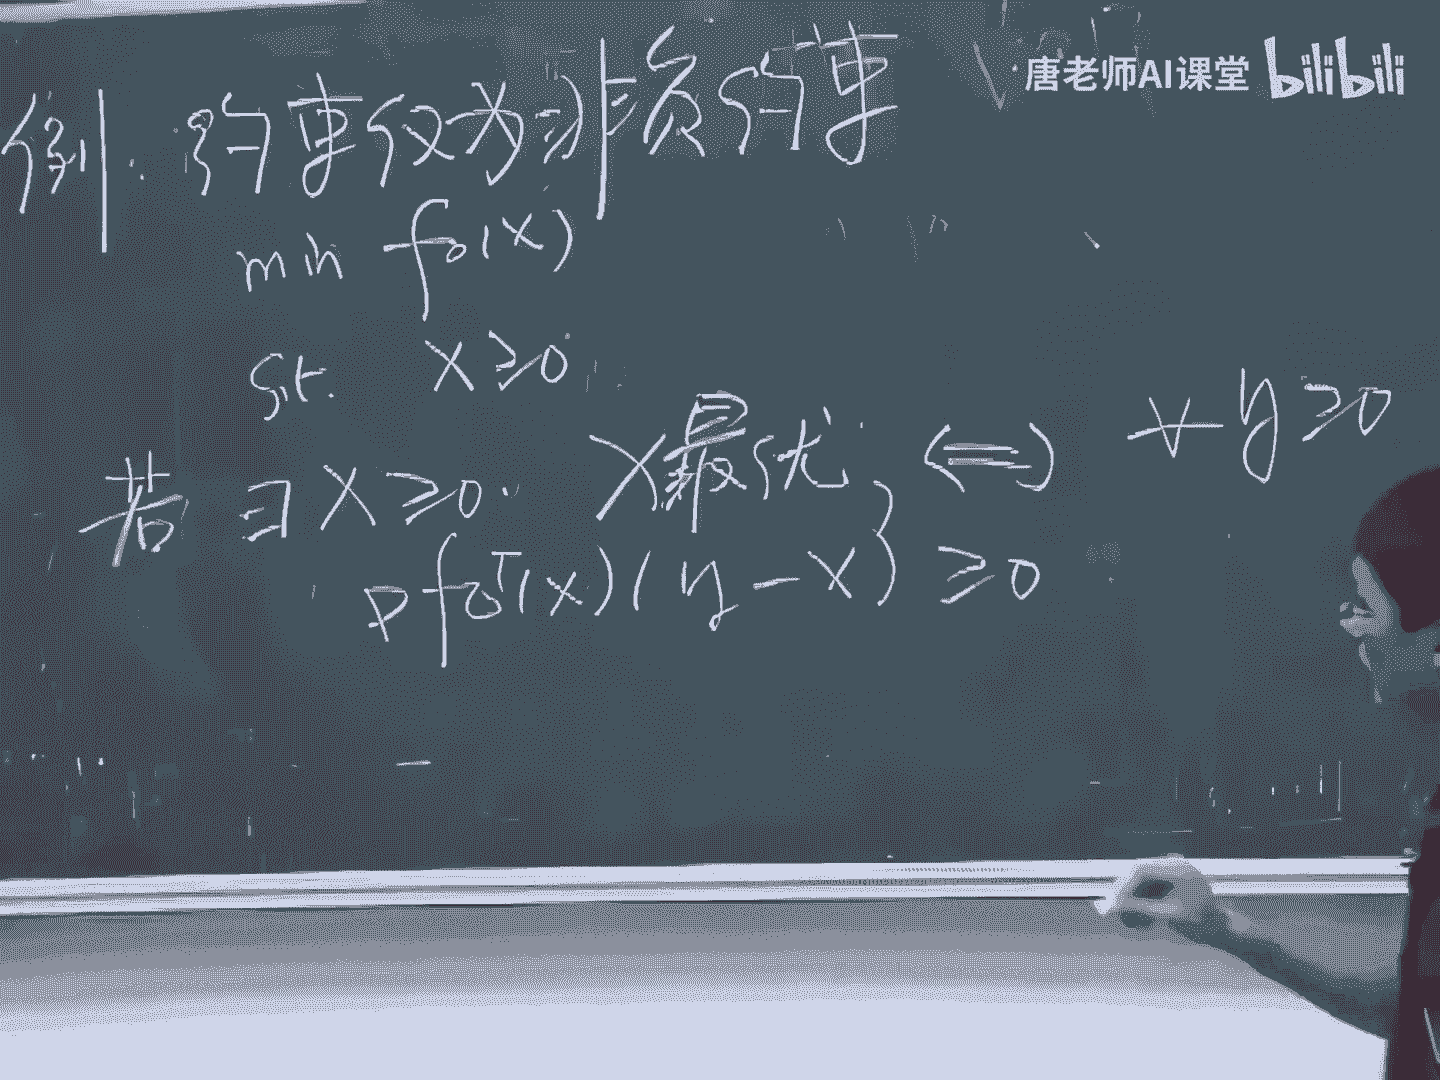 唐老师AI课堂 bilibili
例. 约束仅为非负约束
min f₀(x)
s.t. x≥0
若 ∃x≥0. x最优 ⟺ ∀y≥0
∇f₀ᵀ(x)(y-x)≥0